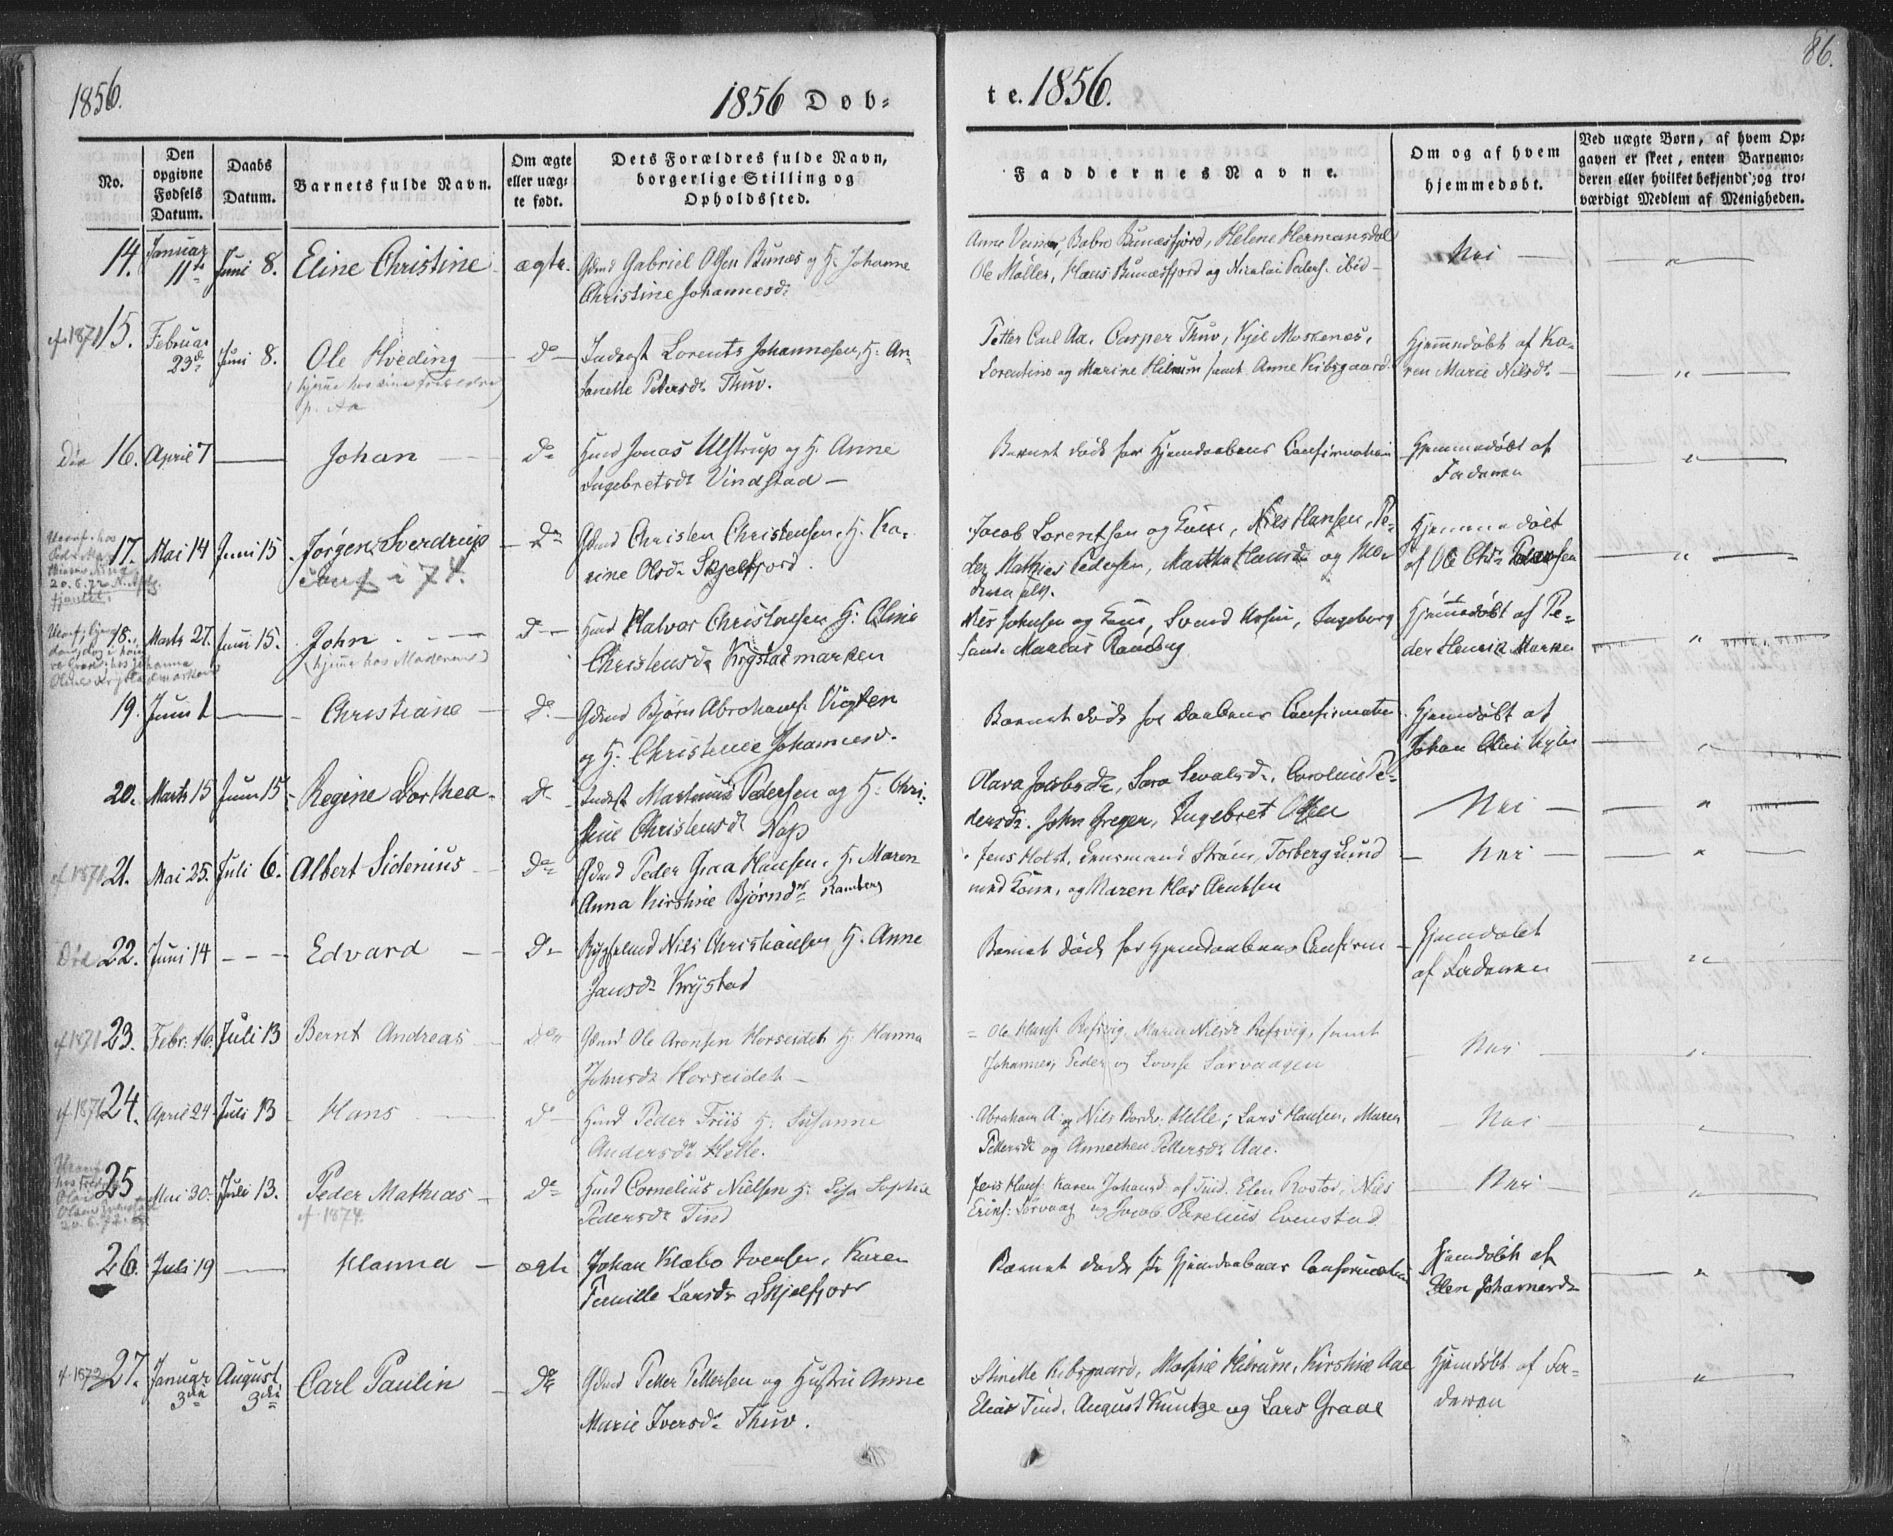 1856.
1856 Døb-
te. 1856.
86.
No.
Den opgivne Fødsels Datum.
Daabs Datum.
Barnets fulde Navn.
Om ægte eller uægte født.
Dets Forældres fulde Navn, borgerlige Stilling og Opholdssted.
Faddernes Navne.
Om og af hvem hjemmedøbt.
Ved uægte Børn, af hvem Opgaven er skeet, enten Barnemoderen eller hvilket bekjendt og troværdigt Medlem af Menigheden.
14. Januar 11te Juni 8. Eline Christine ægte. Gdmd Gabriel Olsen Bunæs og H. Johanne
Christine Johannesdr
Ole Møller, Hans Bunæsfjord og Nicolai Peders. ibid —
Nei
cf. 1871 15. Februar 23de Juni 8. Ole Hveding — do — Inderst Lorents Johannesen, H. An-
tonette Petersdr Thuv.
Petter Carl Aa, Casper Thuv, Kjel Moskenes,
Lorentine og Marine Hilrum samt Anne Kibsgaard
Hjemmedøbt af Ka-
ren Marie Nilsdr
Død 16. April 7 — Johan do Hmd Jonas Ulstrup og H. Anne
Ingebretsdr Vindstad —
Barnet døde før Hjemdaabens Confirmation
Hjemmedøbt af
Faderen
17. Mai 14 Juni 15. Jørgen Sverdrup do Gdmd Christen Christensen, H. Ka-
rine Olsdr Skjelfjord.
Conf i 74.
Jacob Lorentsen og Kone, Nils Hansen, Pe-
der Mathias Pedersen, Martha Hansdr og Mo-
deren selv.
Hjemmedøbt
af Ole Chr.
18. Marts 27. Juni 15. John. do Hmd Halvor Christensen H. Oline
(hjemme hos Moderen) Christensdr Krystadmarken
Nils Johnsen og Kone, Ingeborg
samt Marcus Ramberg
Hjemmedøbt af Pe-
der Henrik Marken
19. Juni 1 — Christiane do Gdmd Bjørn Abrahams. Vigten
og H. Christense Johannesd.
Barnet døde før Daabens Confirmation
Hjemdøbt af
Johan
20. Marts 15 Juni 15 Regine Dorthea do Inderst Martinus Pedersen og H. Chri-
stine Christensdr Nap
Olava Jacobsdr, Sara Sevalsdr, Caroline Pe-
dersdr. John Greger, Ingebret Olsen
Nei
cf 1871 21. Mai 25. Juli 6. Albert Sidenius do Gdmd Peder Graa Hansen. H. Maren
Anna Kirstine Bjørnsdr Ramberg
Jens Holst, Lensmand Strøm, Torberg Lund
med Kone, og Maren Klar Arntsen
Nei
Død 22. Juni 14 Edvard do Nils Christiansen H. Anne
Jansdr Krystad
Barnet døde før Hjemdaabens Confirm
Hjemdøbt
af Faderen
cf 1871 23. Febr. 16. Juli 13 Bernt Andreas do Gdmd Ole Aronsen Horseidet H. Hanna
Johnsdr Horseidet —
Ole Hans. Refsvig, Maren Nilsdr Refsvig, samt
Johannes, Peder og Lovise Sørvaagen
Nei
cf 1871 24. April 24 Juli 13 Hans do Hmd Peder Friis H. Susanne
Andersdr Helle.
Abraham A. og Nils Helle; Lars Hansen, Maren
Pettersdr og Annechen Pettersdr Aae.
Nei
25 Mai 30. Juli 13. Peder Mathias do Hmd Cornelius Nielsen H. Sofia Sophie
cf. 1874. Pedersdr Tind
Jens Hans. Karen Johansd af Tind. Elen Rostad, Nils
Eriks. Sørvaag og Jacob Parelius Evenstad
Nei
26. Juli 19 — Hanna — ægte Johan Klæbo Iversen, Karen
Pernille Larsdr Skjelfjord
Barnet døde før Hjemdaabens Confirmation
Hjemdøbt af
Elen Johannesdr
cf. 1872 27. Januar 3die August 3die Carl Paulin do Gdmd Petter Pettersen og Hustru Anne
Marie Iversdr Thuv.
Stinette Kibsgaard, Kirstine Aae
Elias Tind, August Kuntze og Lars Graae
Hjemdøbt af Fa-
deren